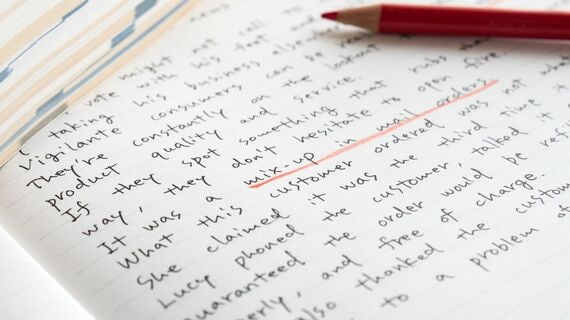 news
vote might not call to
taking with his foot and
Vigilante his business elsewhere
They're consumers can be re
product constantly on the lookout
If they quality and service. rubs the
way, they spot something that
It was a don't hesitate to open fire.
What this mix-up in mail orders
She claimed customer ordered was not what
Lucy phoned it was the third time it
guaranteed the customer, talked it
erly, and order would be ref
also free of charge.
to thanked the custom
a problem of